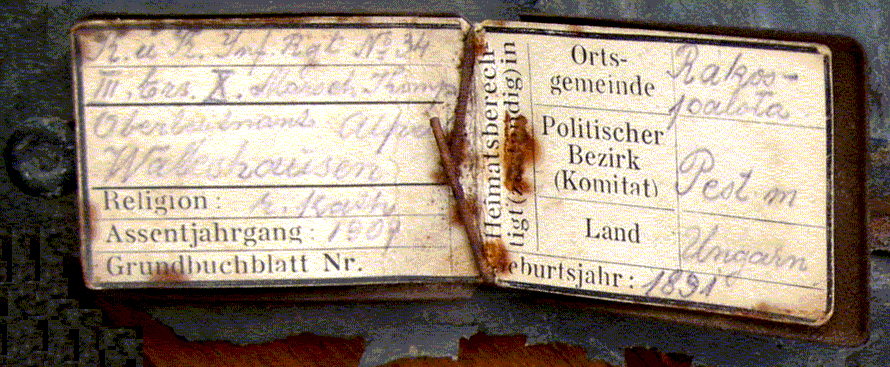 K. u. K. Inf. Rgt. No 34
III. Ers. X. Marsch Komp
Oberleutnant Alfre
Religion: r. kath
Assentjahrgang: 1909
Grundbuchblatt Nr.
Heimatsberech-
tigt (zuständig) in
Orts-
gemeinde
Rakos-
palota
Politischer
Bezirk
(Komitat)
Pest m
Land
Ungarn
eburtsjahr: 1891